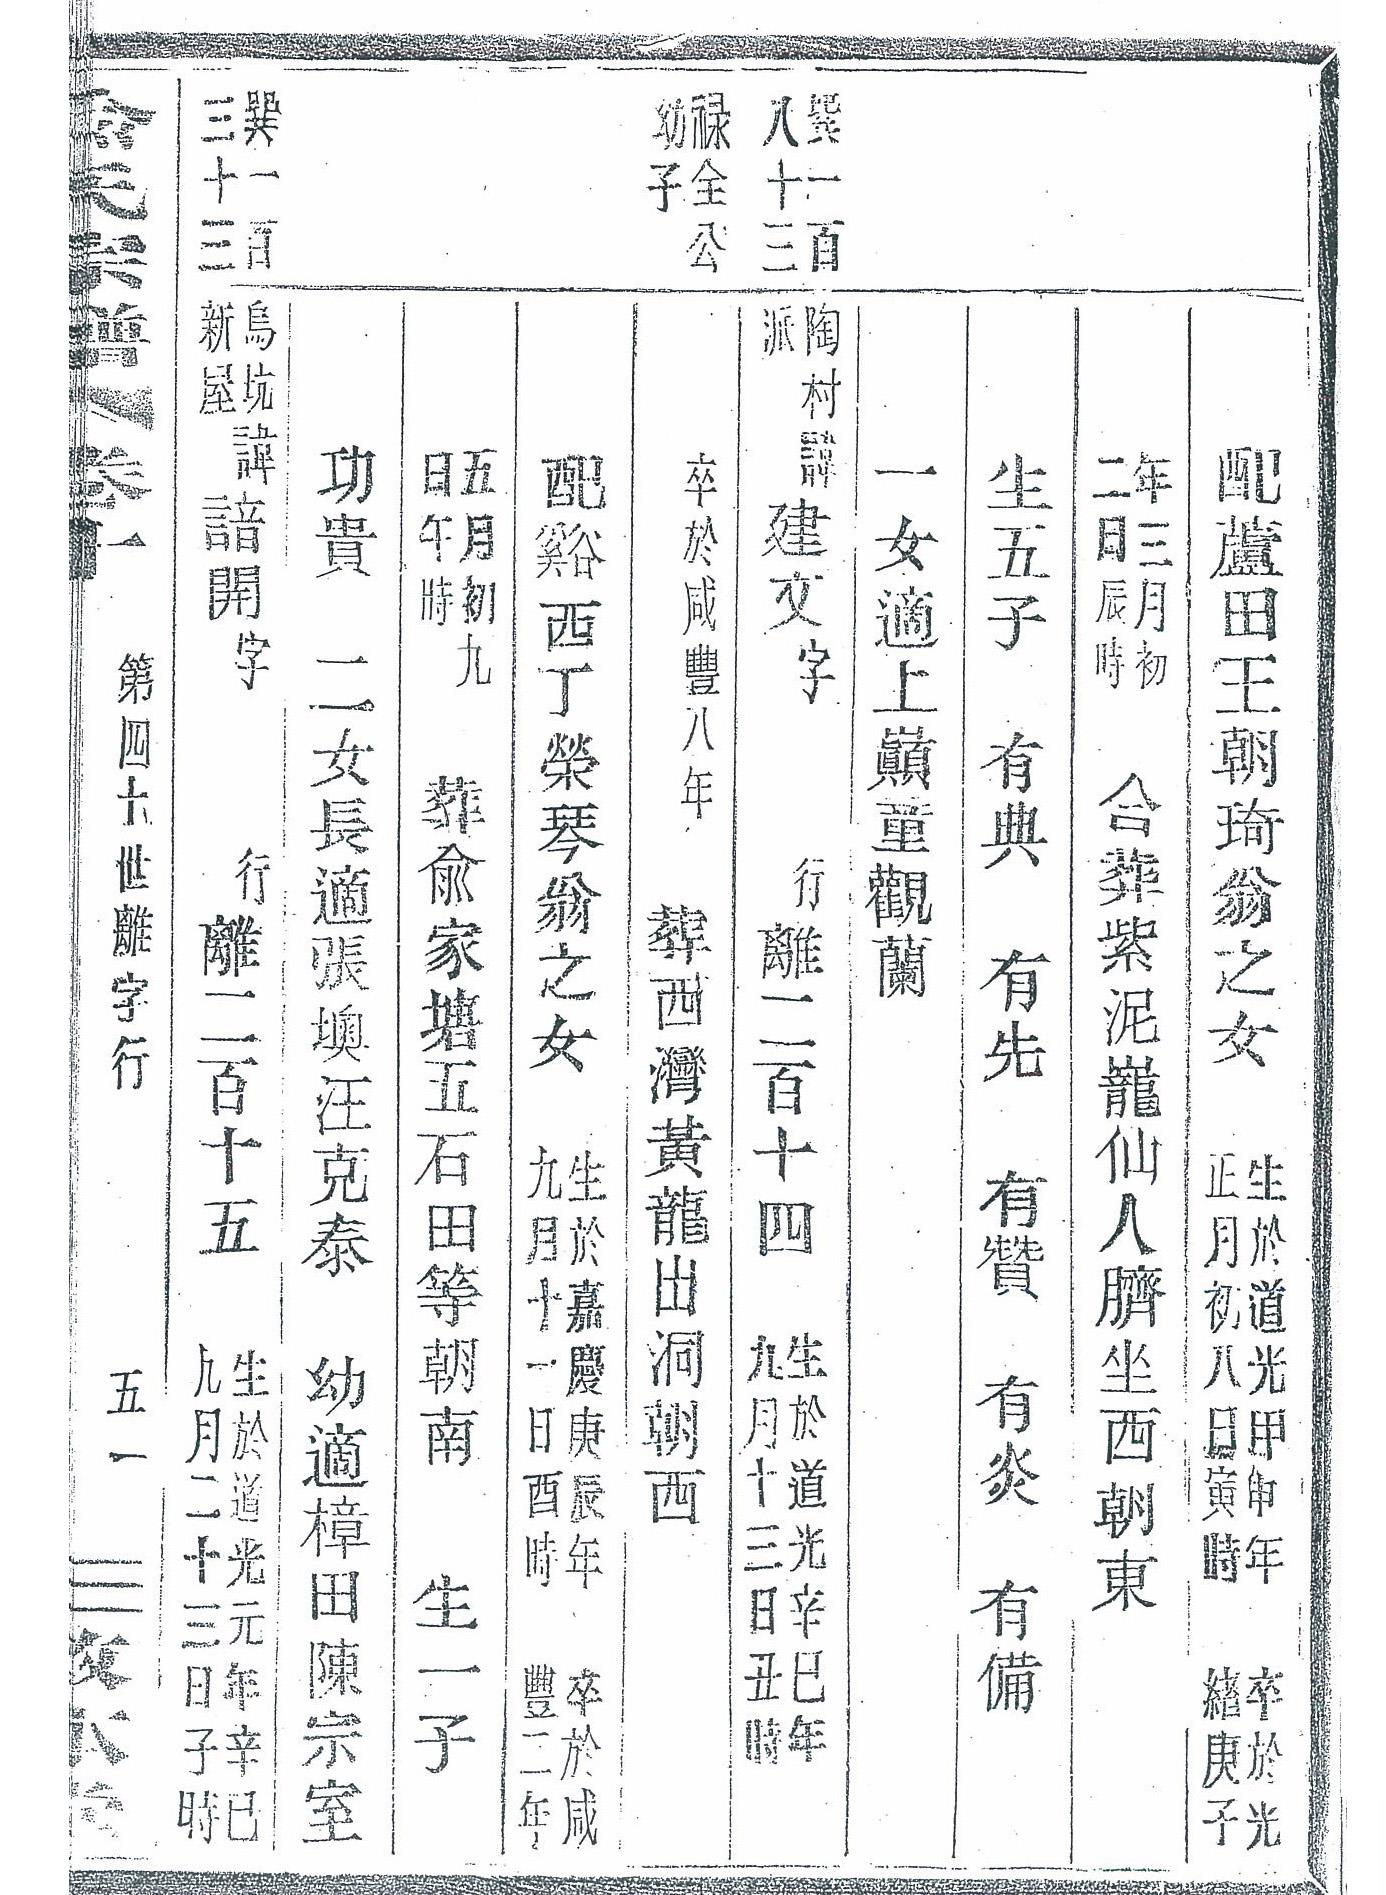 配蘆田王朝琦翁之女 生於道光甲申年正月初八日寅時 卒於光緒庚子
年三月初二日辰時 合葬紫泥巃仙人臍坐西朝東
生五子 有典 有先 有贊 有炎 有備
一女適上巔童觀蘭
巽一百八十三 陶村派諱建文字 行離二百十四 生於道光辛巳年九月十三日丑時
祿全公幼子 卒於咸豐八年 葬西灣黃龍出洞朝西
配谿西丁榮琴翁之女 生於嘉慶庚辰年九月十一日酉時 卒於咸豐二年
五月初九日午時 葬俞家塘五石田等朝南 生一子
功貴 二女長適張墺汪克泰 幼適樟田陳宗室
巽一百三十三 烏坑新屋諱諳開字 行離二百十五 生於道光元年辛巳九月二十三日子時
宗譜 卷一 第四十世離字行 五一